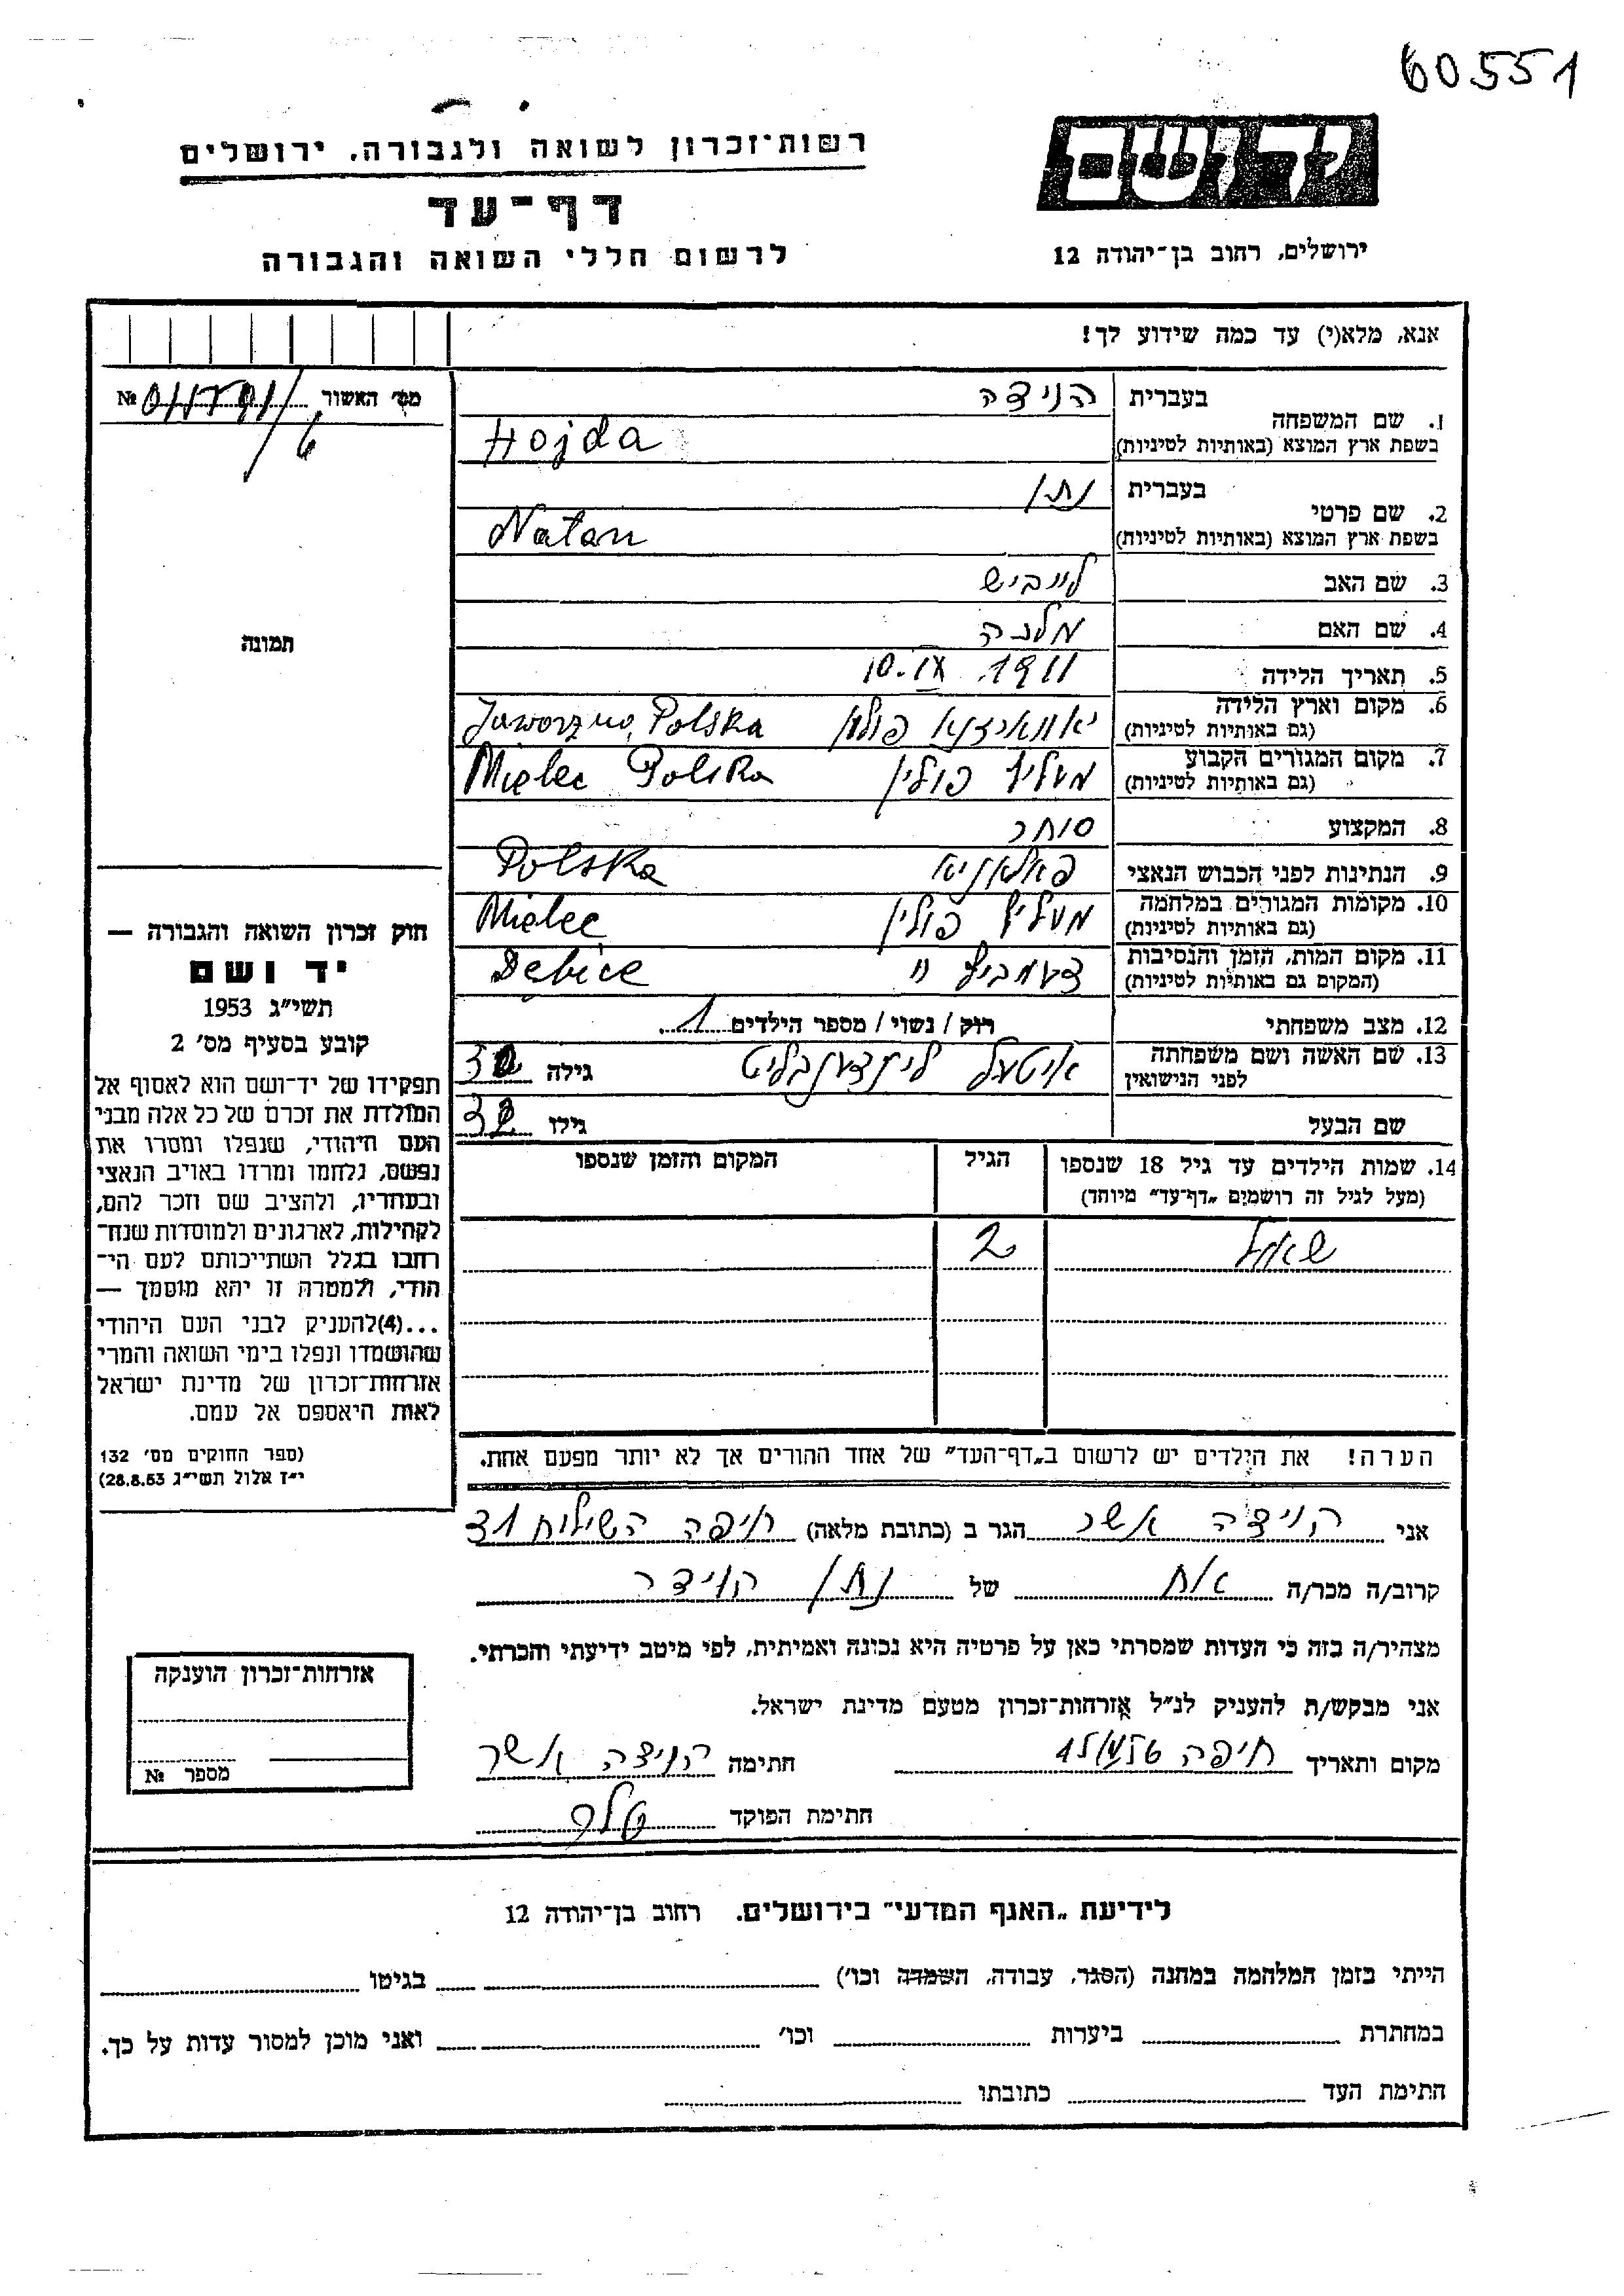 60551
יד ושם
רשות־זכרון לשואה ולגבורה, ירושלים
דף־עד
לרשום חללי השואה והגבורה
ירושלים, רחוב בן־יהודה 12
אנא, מלא(י) עד כמה שידוע לך!
מס׳ האשור №
1. שם המשפחה בעברית הוידה
בשפת ארץ המוצא (באותיות לטיניות) Hojda
2. שם פרטי בעברית נתן
בשפת ארץ המוצא (באותיות לטיניות) Natan
3. שם האב לייביש
4. שם האם מלכה
5. תאריך הלידה 10.IX 1911
6. מקום וארץ הלידה (גם באותיות לטיניות) פולין Jaworzno, Polska
7. מקום המגורים הקבוע (גם באותיות לטיניות) מעליץ פולין Mielec Polska
8. המקצוע סוחר
9. הנתינות לפני הכבוש הנאצי פאלאניא Polska
10. מקומות המגורים במלחמה (גם באותיות לטיניות) מעליץ פולין Mielec
11. מקום המות, הזמן והנסיבות (המקום גם באותיות לטיניות) דעמביץ " Debice
12. מצב משפחתי רוק / נשוי / מספר הילדים 1
13. שם האשה ושם משפחתה לפני הנישואין גילה
שם הבעל גילו 32
14. שמות הילדים עד גיל 18 שנספו
(מעל לגיל זה רושמים „דף־עד״ מיוחד)
הגיל
המקום והזמן שנספו
שאול 2
תמונה
חוק זכרון השואה והגבורה —
יד ושם
תשי״ג 1953
קובע בסעיף מס׳ 2
תפקידו של יד־ושם הוא לאסוף אל
המולדת את זכרם של כל אלה מבני
העם היהודי, שנפלו ומסרו את
נפשם, נלחמו ומרדו באויב הנאצי
ובעוזריו, ולהציב שם וזכר להם,
לקהילות, לארגונים ולמוסדות שנח־
רבו בגלל השתייכותם לעם הי־
הודי, ולמטרה זו יהא מוסמך —
...(4)להעניק לבני העם היהודי
שהושמדו ונפלו בימי השואה והמרי
אזרחות־זכרון של מדינת ישראל
לאות היאספם אל עמם.
(ספר החוקים מס׳ 132
י״ז אלול תשי״ג 28.8.53)
הערה! את הילדים יש לרשום ב„דף־העד״ של אחד ההורים אך לא יותר מפעם אחת.
אני הוידה אשר הגר ב (כתובת מלאה) חיפה השילוח 31
קרוב/ה מכר/ה אח של נתן הוידה
מצהיר/ה בזה כי העדות שמסרתי כאן על פרטיה היא נכונה ואמיתית, לפי מיטב ידיעתי והכרתי.
אני מבקש/ת להעניק לנ״ל אזרחות־זכרון מטעם מדינת ישראל.
מקום ותאריך חיפה חתימה הוידה אשר
חתימת הפוקד
אזרחות־זכרון הוענקה
מספר №
לידיעת „האגף המדעי״ בירושלים. רחוב בן־יהודה 12
הייתי בזמן המלחמה במחנה (הסגר, עבודה, השמדה וכו׳) בגיטו
במחתרת ביערות וכו׳ ואני מוכן למסור עדות על כך.
חתימת העד כתובתו